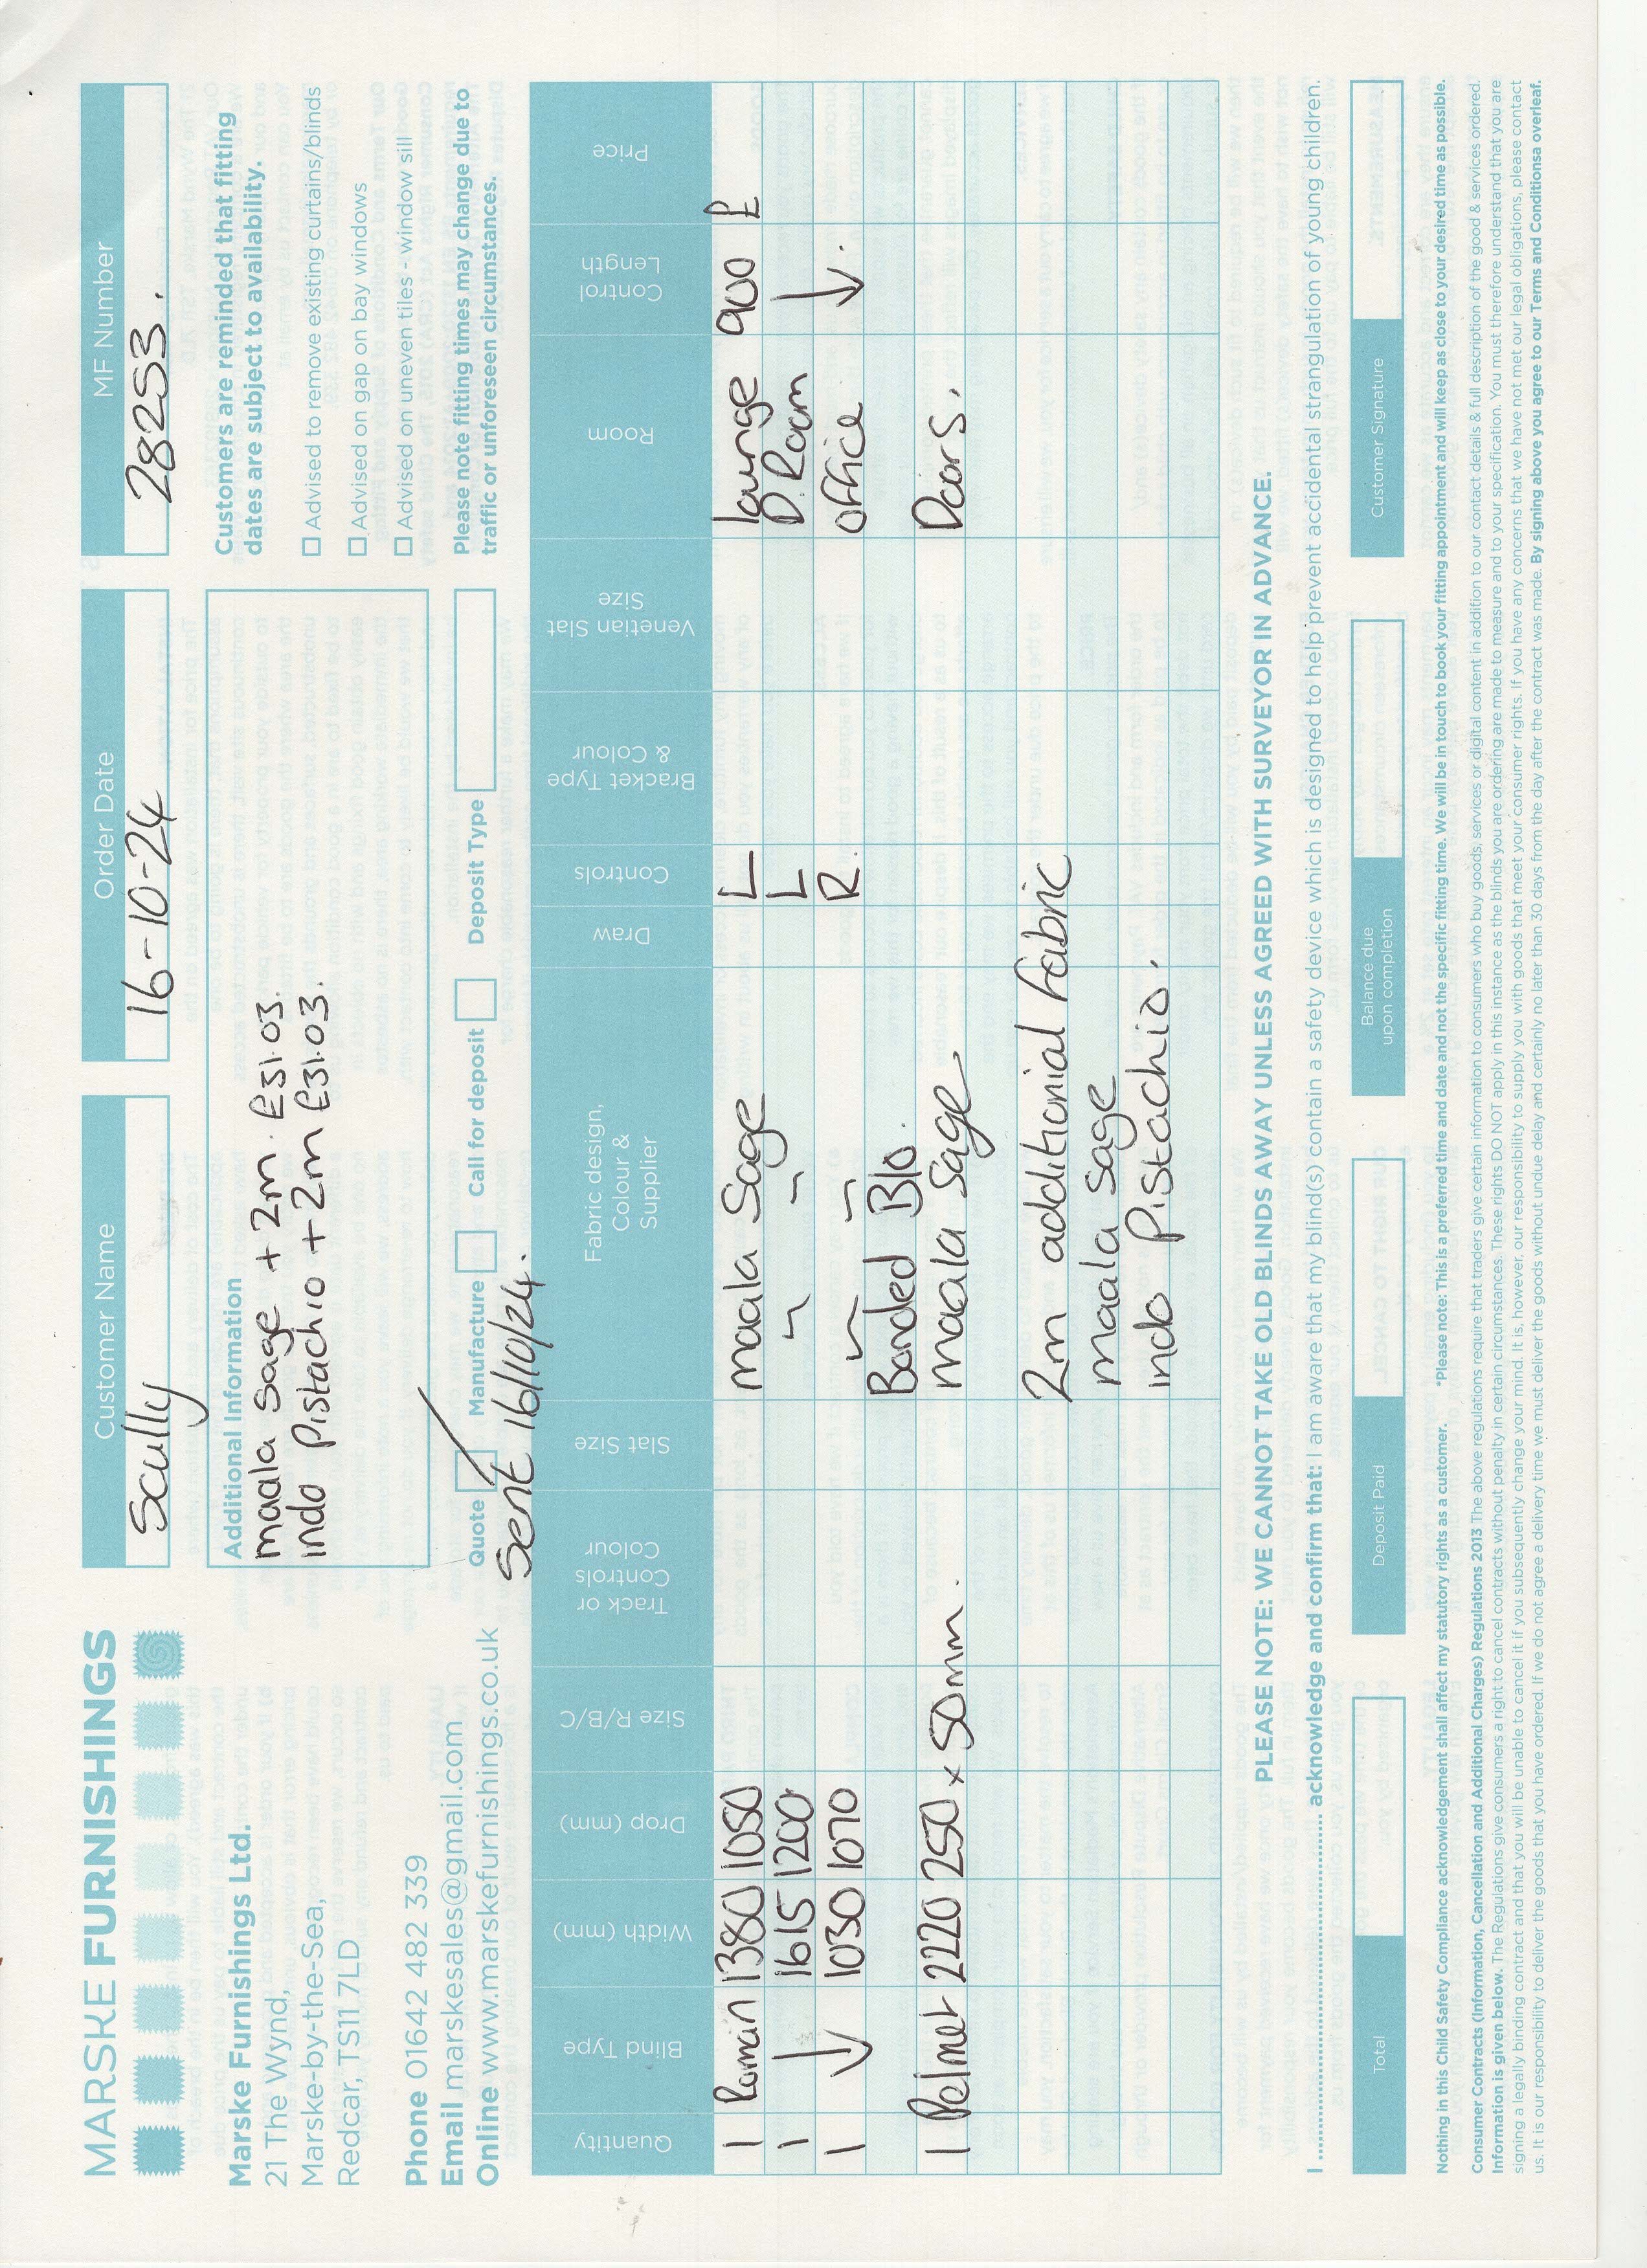 MARSKE FURNISHINGS
Marske Furnishings Ltd.
21 The Wynd,
Marske-by-the-Sea,
Redcar, TS11 7LD
Phone 01642 482 339
Email marskesales@gmail.com
Online www.marskefurnishings.co.uk
Customer Name
Scully
Order Date
16-10-24
MF Number
28253.
Additional Information
maala Sage + 2m. £51.03.
indo Pistachio + 2m £31.03.
Customers are reminded that fitting
dates are subject to availability.
Advised to remove existing curtains/blinds
Advised on gap on bay windows
Advised on uneven tiles - window sill
Please note fitting times may change due to
traffic or unforeseen circumstances.
Quote Manufacture Call for deposit Deposit Type
Sent 16/10/24.
Quantity Blind Type Width (mm) Drop (mm) Size R/B/C Track or Controls Colour Slat Size Fabric design, Colour & Supplier Draw Controls Bracket Type & Colour Venetian Slat Size Room Control Length Price
1 Roman 1380 1050 maala Sage L lounge 900 £
1 1615 1200 L D. Room
1 1030 1070 R. office
Bonded Blo.
1 Pelmet 2220 250 x 50mm. maala sage Doors.
2m additional fabric
maala sage
indo Pistachio.
PLEASE NOTE: WE CANNOT TAKE OLD BLINDS AWAY UNLESS AGREED WITH SURVEYOR IN ADVANCE.
I ........................ acknowledge and confirm that: I am aware that my blind(s) contain a safety device which is designed to help prevent accidental strangulation of young children.
Total Deposit Paid Balance due upon completion Customer Signature
Nothing in this Child Safety Compliance acknowledgement shall affect my statutory rights as a customer. *Please note: This is a preferred time and date and not the specific fitting time. We will be in touch to book your fitting appointment and will keep as close to your desired time as possible.
Consumer Contracts (Information, Cancellation and Additional Charges) Regulations 2013 The above regulations require that traders give certain information to consumers who buy goods, services or digital content in addition to our contact details & full description of the good & services ordered.
Information is given below. The Regulations give consumers a right to cancel contracts without penalty in certain circumstances. These rights DO NOT apply in this instance as the blinds you are ordering are made to measure and to your specification. You must therefore understand that you are
signing a legally binding contract and that you will be unable to cancel it if you subsequently change your mind. It is, however, our responsibility to supply you with goods that meet your consumer rights. If you have any concerns that we have not met our legal obligations, please contact
us. It is our responsibility to deliver the goods that you have ordered. If we do not agree a delivery time we must deliver the goods without undue delay and certainly no later than 30 days from the day after the contract was made. By signing above you agree to our Terms and Conditionsa overleaf.